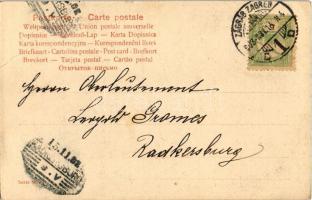 Carte postale
Weltpostverein Union postale universelle
Dopisnice Levelező-Lap - Karta Dopisnica
Karta korespondencyjna - Korespondenční lístek
Briefkaart - Cartolina postale - Post card - Brefkort
Brevkort - Tarjeta postal - Cartão postal
ОТКРЫТОЕ ПИСЬМО
ZAGREB ZAGREB
Herrn Oberleutement
Leopold Grames
Radkersburg
15.11.06